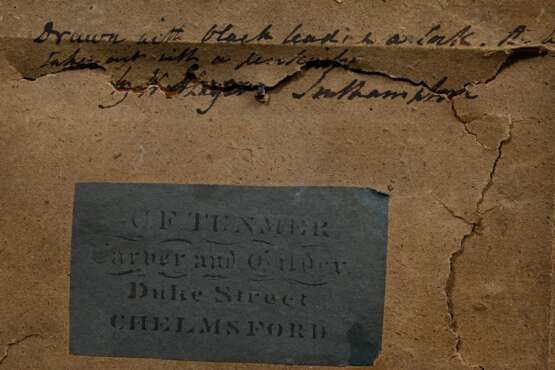 Drawn with black lead & a cork. The
taken out with a penknife
by Southampton
C F TENMER
Carver and Gilder
Duke Street
CHELMSFORD